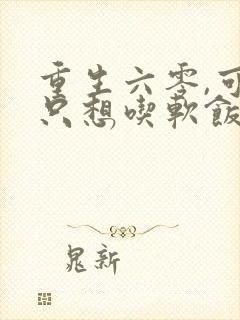 重生六零,可
只想喫軟飯
晁新